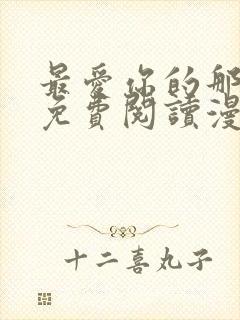 最愛你的那
免費閱讀漫
十二喜丸子